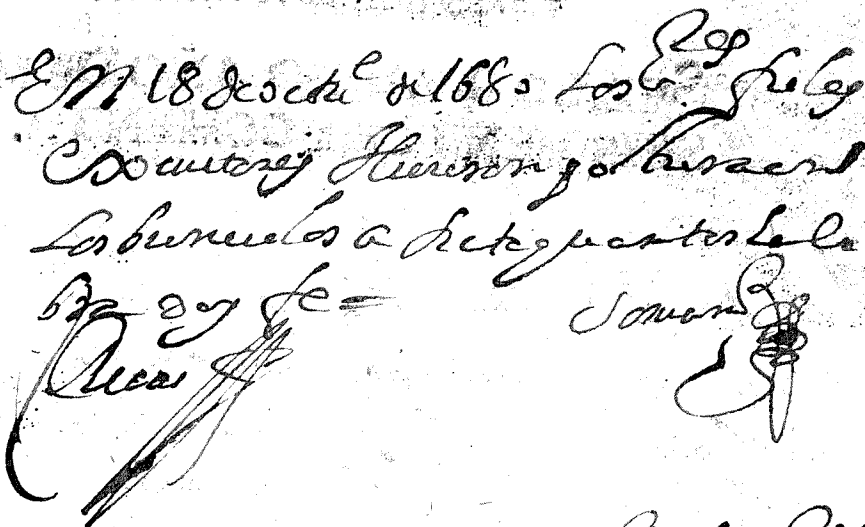 En 18 de octe de 1680 Los sres fieles
executores hicieron postura en
Los buñuelos a siete quartos de la
lbra doy fe =